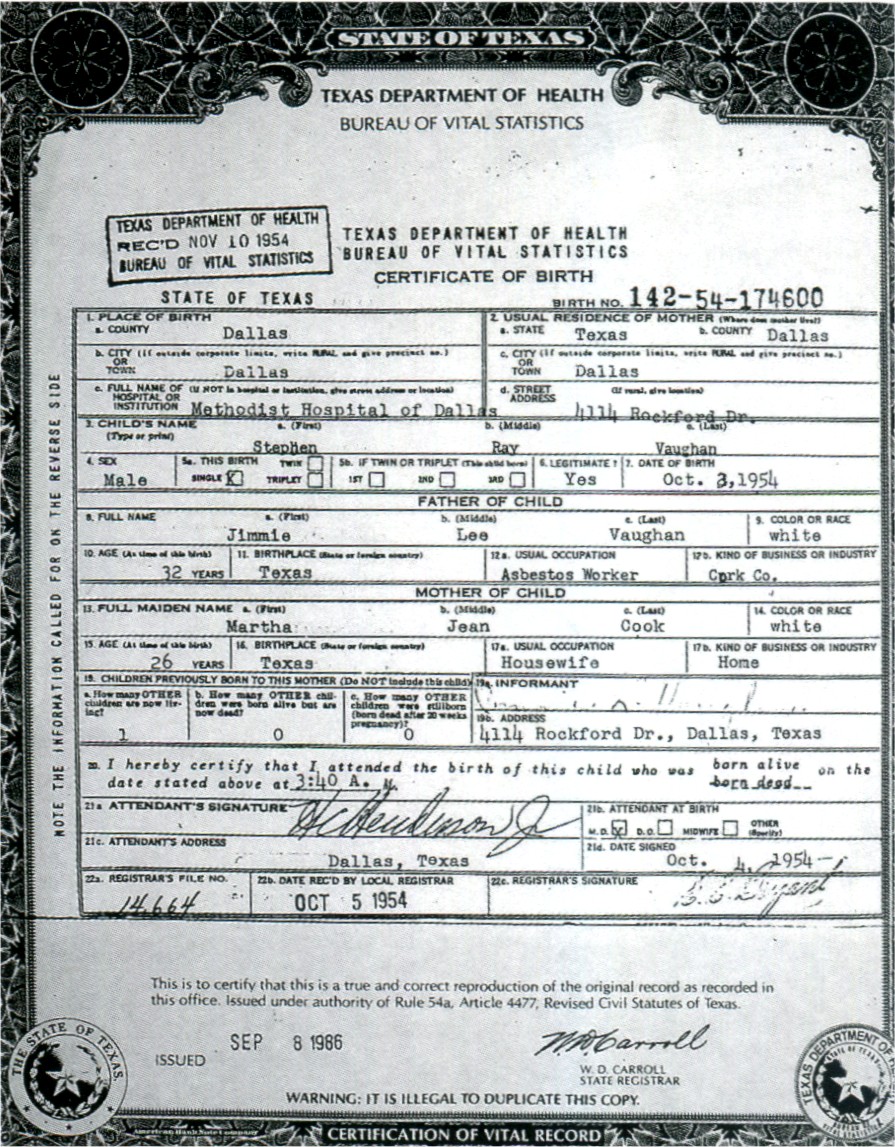 STATE OF TEXAS
TEXAS DEPARTMENT OF HEALTH
BUREAU OF VITAL STATISTICS
TEXAS DEPARTMENT OF HEALTH
REC'D NOV 10 1954
BUREAU OF VITAL STATISTICS
TEXAS DEPARTMENT OF HEALTH
BUREAU OF VITAL STATISTICS
CERTIFICATE OF BIRTH
STATE OF TEXAS
BIRTH NO. 142-54-174600
NOTE THE INFORMATION CALLED FOR ON THE REVERSE SIDE
1. PLACE OF BIRTH
a. COUNTY Dallas
2. USUAL RESIDENCE OF MOTHER (Where does mother live?)
a. STATE Texas b. COUNTY Dallas
b. CITY (If outside corporate limits, write RURAL and give precinct no.)
OR
TOWN Dallas
c. CITY (If outside corporate limits, write RURAL and give precinct no.)
OR
TOWN Dallas
c. FULL NAME OF (If NOT in hospital or institution, give street address or location)
HOSPITAL OR
INSTITUTION Methodist Hospital of Dallas
d. STREET (If rural, give location)
ADDRESS 4114 Rockford Dr.
3. CHILD'S NAME a. (First) b. (Middle) c. (Last)
(Type or print)
Stephen Ray Vaughan
4. SEX
Male
5a. THIS BIRTH TWIN
SINGLE X TRIPLET
5b. IF TWIN OR TRIPLET (This child born)
1ST 2ND 3RD
6. LEGITIMATE?
Yes
7. DATE OF BIRTH
Oct. 3,1954
FATHER OF CHILD
8. FULL NAME a. (First) b. (Middle) c. (Last)
Jimmie Lee Vaughan
9. COLOR OR RACE
white
10. AGE (At time of this birth)
32 YEARS
11. BIRTHPLACE (State or foreign country)
Texas
12a. USUAL OCCUPATION
Asbestos Worker
12b. KIND OF BUSINESS OR INDUSTRY
Cork Co.
MOTHER OF CHILD
13. FULL MAIDEN NAME a. (First) b. (Middle) c. (Last)
Martha Jean Cook
14. COLOR OR RACE
white
15. AGE (At time of this birth)
26 YEARS
16. BIRTHPLACE (State or foreign country)
Texas
17a. USUAL OCCUPATION
Housewife
17b. KIND OF BUSINESS OR INDUSTRY
Home
18. CHILDREN PREVIOUSLY BORN TO THIS MOTHER (Do NOT include this child)
a. How many OTHER
children are now liv-
ing?
1
b. How many OTHER chil-
dren were born alive but are
now dead?
0
c. How many OTHER
children were stillborn
(born dead after 20 weeks
pregnancy)?
0
19a. INFORMANT
19b. ADDRESS
4114 Rockford Dr., Dallas, Texas
20. I hereby certify that I attended the birth of this child who was born alive on the
born dead
date stated above at 3:40 A. M.
21a ATTENDANT'S SIGNATURE
HC Henderson Jr
21b. ATTENDANT AT BIRTH
M.D. X D.O. MIDWIFE OTHER
(Specify)
21c. ATTENDANT'S ADDRESS
Dallas, Texas
21d. DATE SIGNED
Oct. 4, 1954
22a. REGISTRAR'S FILE NO.
14,664
22b. DATE REC'D BY LOCAL REGISTRAR
OCT 5 1954
22c. REGISTRAR'S SIGNATURE
Bryant
This is to certify that this is a true and correct reproduction of the original record as recorded in
this office. Issued under authority of Rule 54a, Article 4477, Revised Civil Statutes of Texas.
ISSUED SEP 8 1986
W.D. Carroll
W. D. CARROLL
STATE REGISTRAR
WARNING: IT IS ILLEGAL TO DUPLICATE THIS COPY.
THE STATE OF TEXAS
TEXAS DEPARTMENT OF
American Bank Note Company
CERTIFICATION OF VITAL RECORD